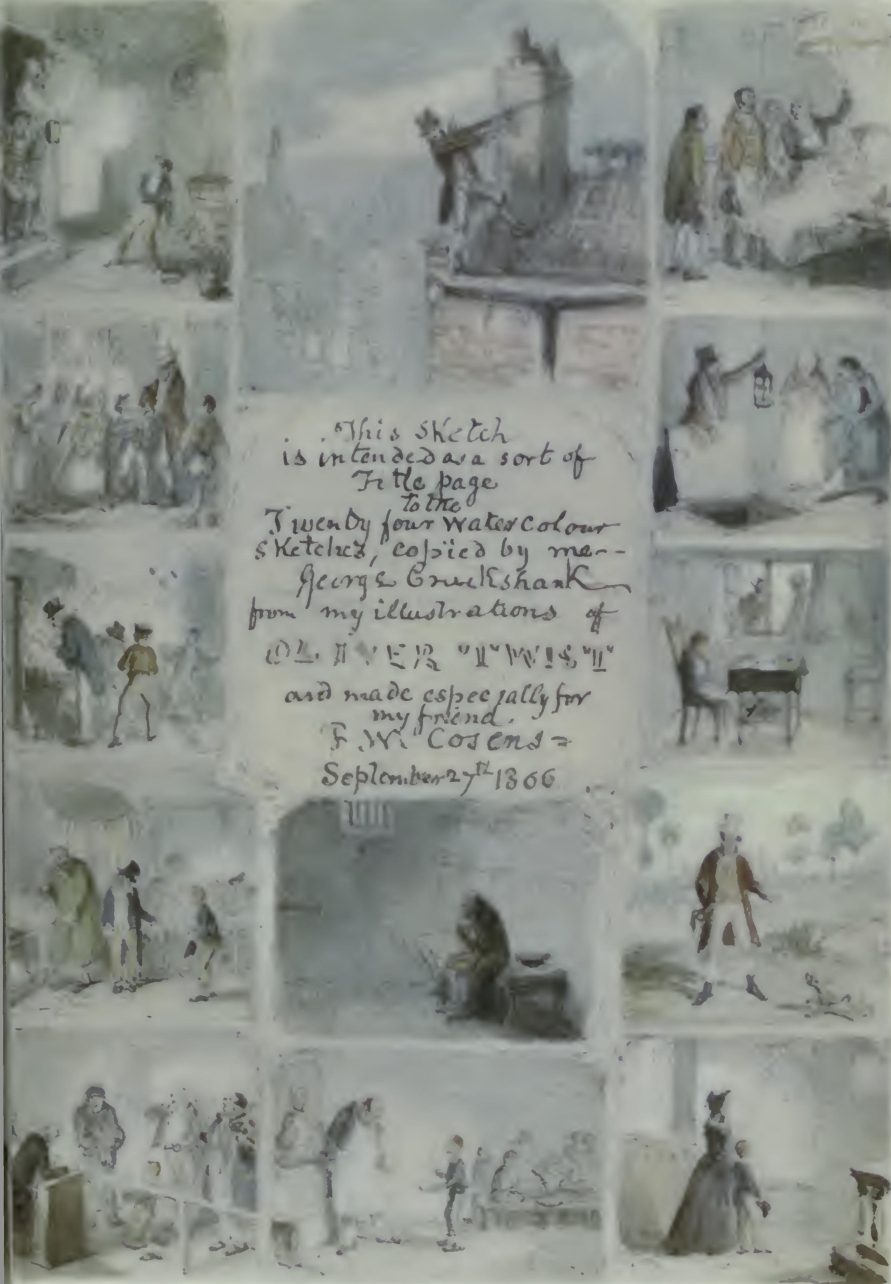 This Sketch
is intended as a sort of
Title page
to the
Twenty four Water Colour
Sketches, copied by me--
George Cruikshank
from my illustrations of
OLIVER "TWIST"
and made especially for
my friend.
F. W. Cosens =
September 27th 1866